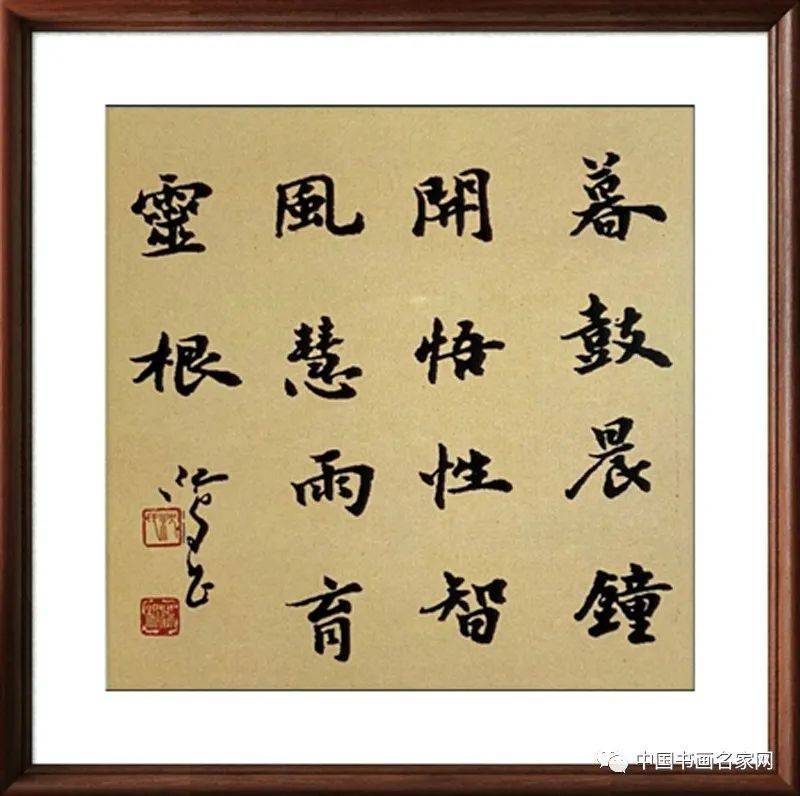 暮鼓晨鐘
開悟性智
風慧雨育
靈根
中国书画名家网